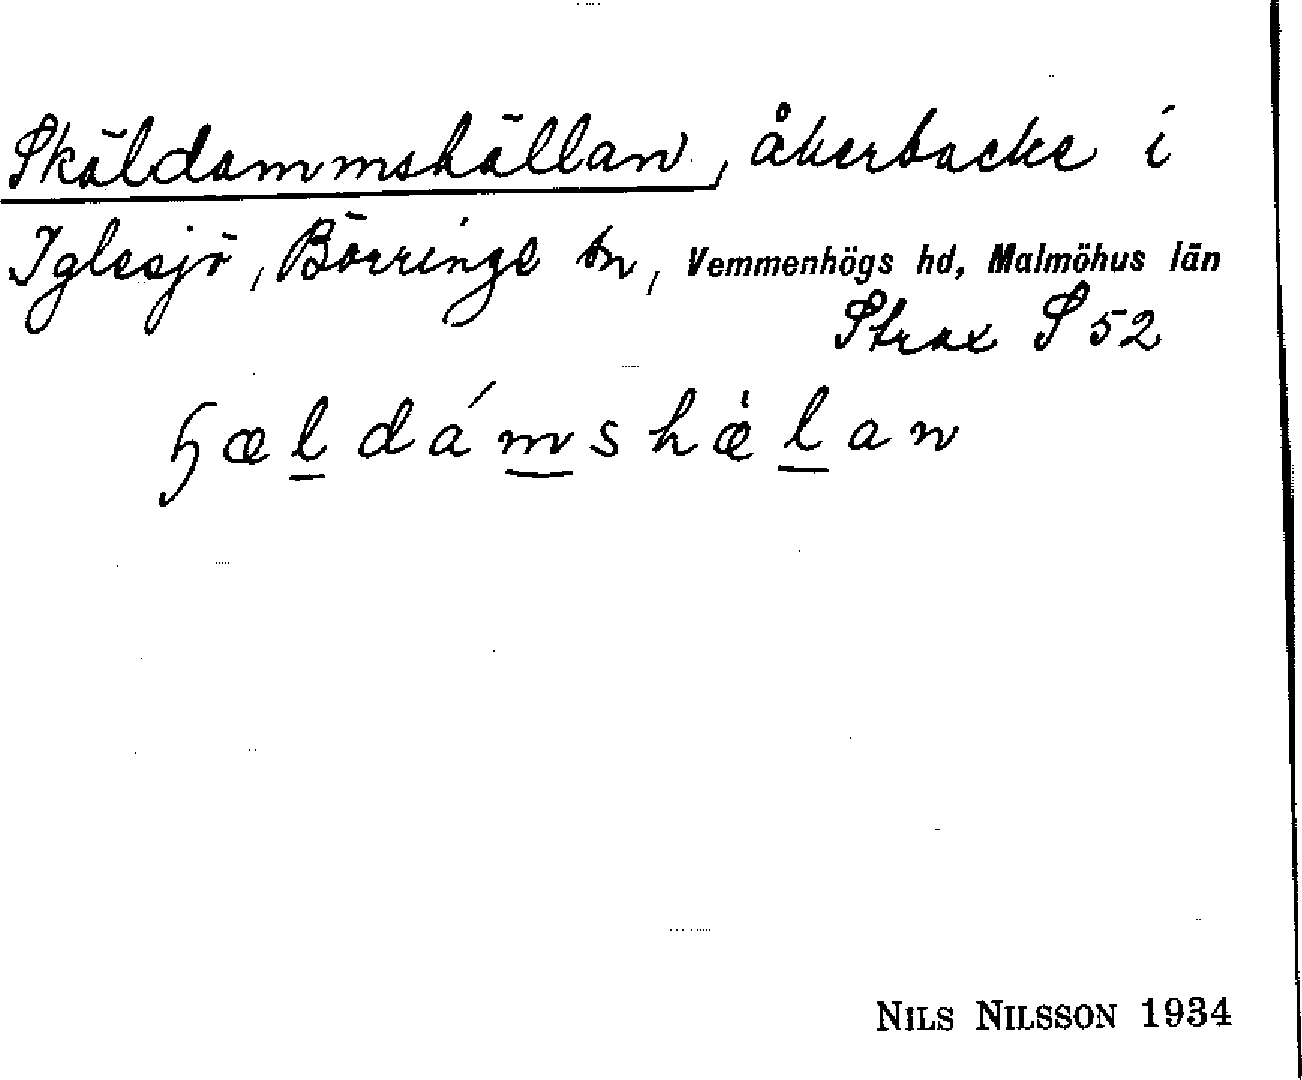 Skäldammshällan, åkerbacke i
Iglesjö, Börringe sn, Vemmenhögs hd, Malmöhus län
Strax S 52
ɧældámshæ̀lan
NILS NILSSON 1934